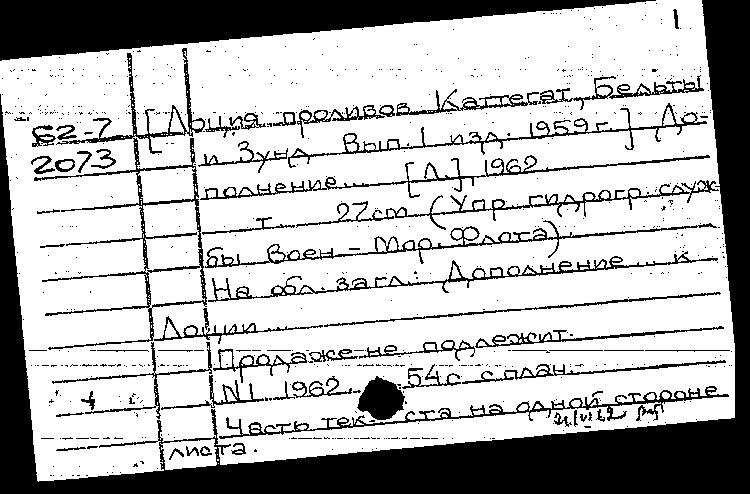 1
62-7
2073
[Лоция проливов Каттегат, Бельты
и Зунд Вып. 1 изд. 1959 г.] До-
полнение... [Л.], 1962.
т. 27см (Упр. гидрогр. служ
бы Воен-Мор. Флота)
На обл. загл.: Дополнение... к
Лоции...
Продаже не подлежит.
N1. 1962. 54 с. с план.
Часть тек ста на одной стороне
листа.